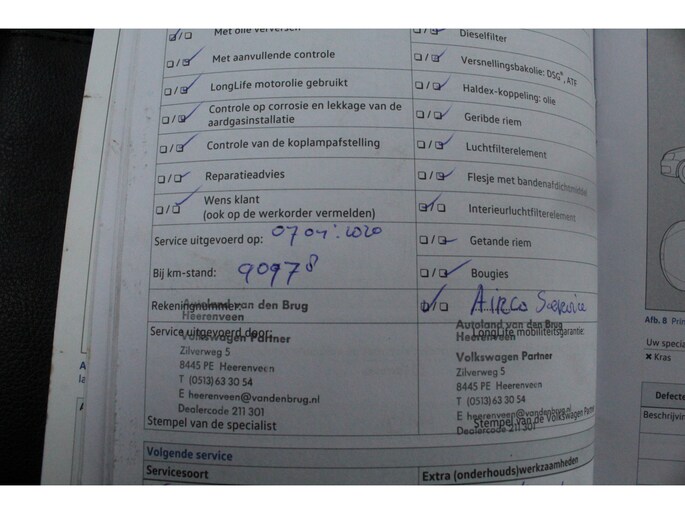 Met olie verversen
Met aanvullende controle
LongLife motorolie gebruikt
Controle op corrosie en lekkage van de
aardgasinstallatie
Controle van de koplampafstelling
Reparatieadvies
Wens klant
(ook op de werkorder vermelden)
Service uitgevoerd op: 07 04 : 2020
Bij km-stand: 90978
Rekeningnummer:
Autoland van den Brug
Heerenveen
Service uitgevoerd door:
Volkswagen Partner
Zilverweg 5
8445 PE Heerenveen
T (0513) 63 30 54
E heerenveen@vandenbrug.nl
Dealercode 211 301
Stempel van de specialist
Dieselfilter
Versnellingsbakolie: DSG®, ATF
Haldex-koppeling: olie
Geribde riem
Luchtfilterelement
Flesje met bandenafdichtmiddel
Interieurluchtfilterelement
Getande riem
Bougies
Airco Service
Autoland van den Brug
Heerenveen
LongLife mobiliteitsgarantie:
Volkswagen Partner
Zilverweg 5
8445 PE Heerenveen
T (0513) 63 30 54
E heerenveen@vandenbrug.nl
Dealercode 211 301
Stempel van de Volkswagen Partner
Volgende service
Servicesoort
Extra (onderhouds)werkzaamheden
Afb. 8 Prin
Uw specia
✖ Kras
Defecte
Beschrijvin